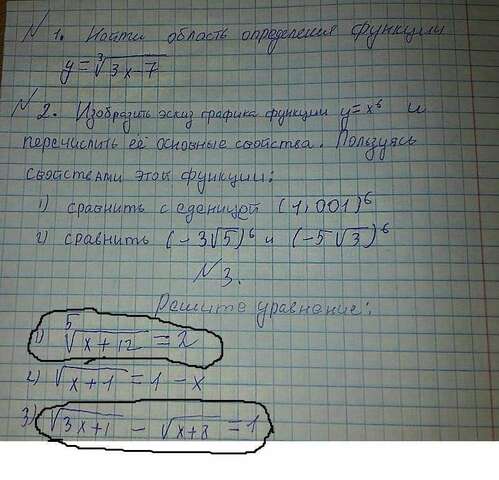 № 1. Найти область определения функции
y = ∛(3x - 7)
№ 2. Изобразить эскиз графика функции y = x⁶ и
перечислить её основные свойства. Пользуясь
свойствами этой функции:
1) сравнить с еденицой (1,001)⁶
2) сравнить (-3√5)⁶ и (-5√3)⁶
№ 3.
Решите уравнение:
1) ⁵√(x+12) = 2
2) √(x+1) = 1 - x
3) √(3x+1) - √(x+8) = 1